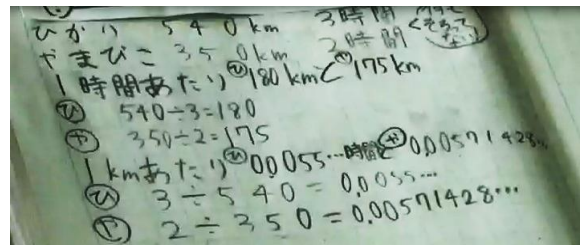 ひかり 540km 3時間
やまびこ 350km 2時間
1時間あたり ㋪180kmと ㋳175km
㋪ 540÷3=180
㋳ 350÷2=175
1kmあたり ㋪0.0055…時間と ㋳0.00571428…
㋪ 3÷540=0.0055…
㋳ 2÷350=0.00571428…